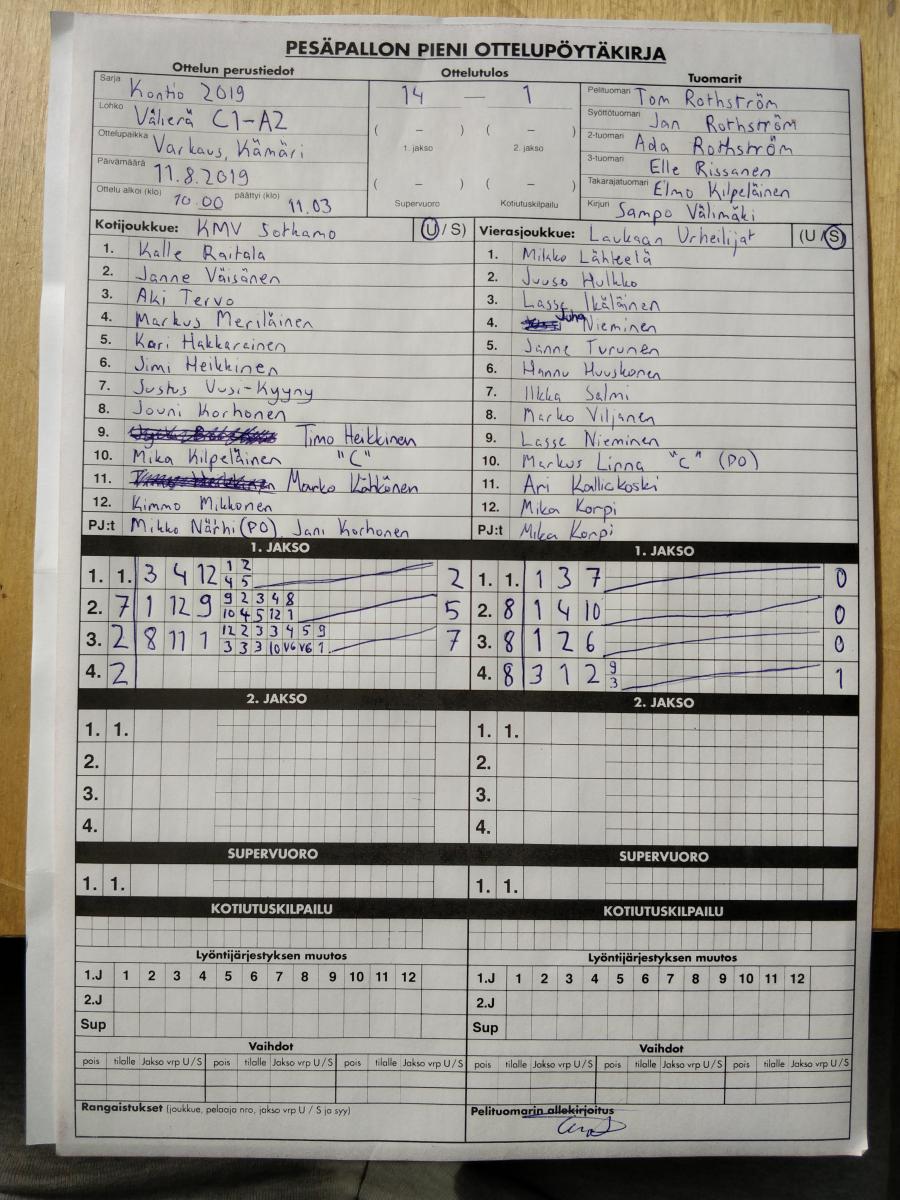 PESÄPALLON PIENI OTTELUPÖYTÄKIRJA
Ottelun perustiedot
Sarja Kontio 2019
Lohko Välierä C1-A2
Ottelupaikka Varkaus, Kämäri
Päivämäärä 11.8.2019
Ottelu alkoi (klo) 10.00 päättyi (klo) 11.03
Ottelutulos
14 — 1
( – ) ( – )
1. jakso 2. jakso
( – ) ( – )
Supervuoro Kotiutuskilpailu
Tuomarit
Pelituomari Tom Rothström
Syöttötuomari Jan Rothström
2-tuomari Ada Rothström
3-tuomari Elle Rissanen
Takarajatuomari Elmo Kilpeläinen
Kirjuri Sampo Välimäki
Kotijoukkue: KMV Sotkamo (U / S)
1. Kalle Raitala
2. Janne Väisänen
3. Aki Tervo
4. Markus Meriläinen
5. Kari Hakkarainen
6. Jimi Heikkinen
7. Justus Uusi-Kyyny
8. Jouni Korhonen
9. Timo Heikkinen
10. Mika Kilpeläinen "C"
11. Marko Kähkönen
12. Kimmo Mikkonen
PJ:t Mikko Närhi (PO), Jani Korhonen
Vierasjoukkue: Laukaan Urheilijat (U / S)
1. Mikko Lähteelä
2. Juuso Hulkko
3. Lasse Ikäläinen
4. Juha Nieminen
5. Janne Turunen
6. Hannu Huuskonen
7. Ilkka Salmi
8. Marko Viljanen
9. Lasse Nieminen
10. Markus Linna "C" (PO)
11. Ari Kallickoski
12. Mika Korpi
PJ:t Mika Korpi
1. JAKSO
1. 1. 3 4 12 1 2 2
4 5
2. 7 1 12 9 9 2 3 4 8 5
10 4 5 12 1
3. 2 8 11 1 12 2 3 3 4 5 9 7
3 3 3 10 V6 V6 1
4. 2
1. JAKSO
1. 1. 1 3 7 0
2. 8 1 4 10 0
3. 8 1 2 6 0
4. 8 3 1 2 9 1
3
2. JAKSO
1. 1.
2.
3.
4.
2. JAKSO
1. 1.
2.
3.
4.
SUPERVUORO
1. 1.
SUPERVUORO
1. 1.
KOTIUTUSKILPAILU
KOTIUTUSKILPAILU
Lyöntijärjestyksen muutos
1.J 1 2 3 4 5 6 7 8 9 10 11 12
2.J
Sup
Lyöntijärjestyksen muutos
1.J 1 2 3 4 5 6 7 8 9 10 11 12
2.J
Sup
Vaihdot
pois tilalle Jakso vrp U / S pois tilalle Jakso vrp U / S pois tilalle Jakso vrp U / S
Vaihdot
pois tilalle Jakso vrp U / S pois tilalle Jakso vrp U / S pois tilalle Jakso vrp U / S
Rangaistukset (joukkue, pelaaja nro, jakso vrp U / S ja syy)
Pelituomarin allekirjoitus